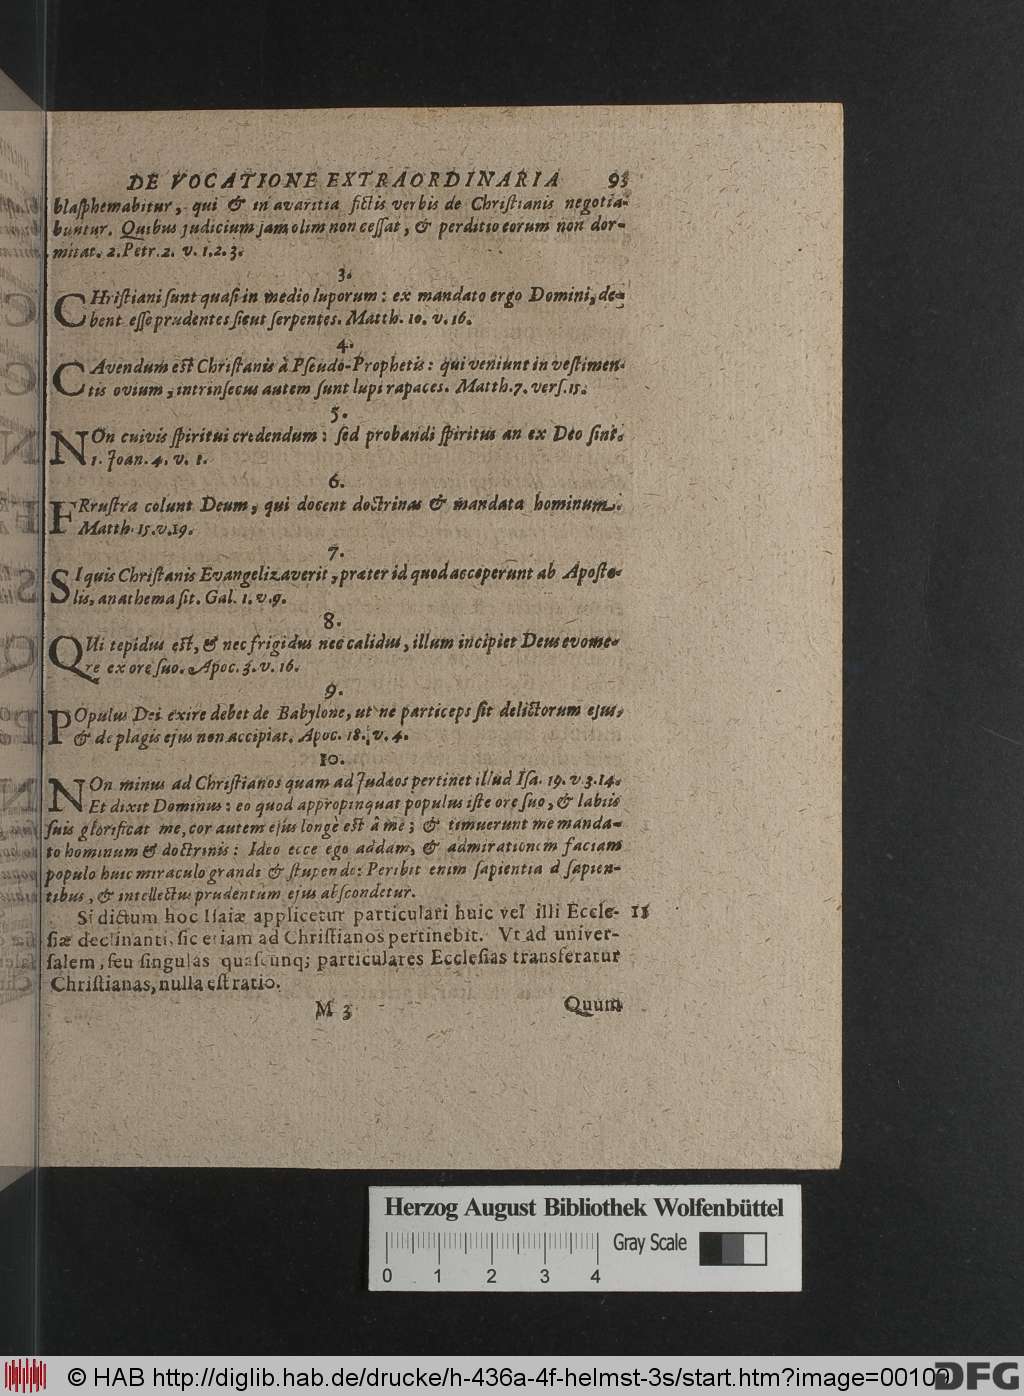 DE VOCATIONE EXTRAORDINARIA 93
blaſphemabitur, qui & in avaritia fictis verbis de Chriſtianis negotia-
buntur. Quibus judicium jam olim non ceſſat, & perditio eorum non dor-
mitat. 2. Petr. 2. v. 1. 2. 3.
3.
CHriſtiani ſunt quaſi in medio luporum: ex mandato ergo Domini, de-
bent eſſe prudentes ſicut ſerpentes. Matth. 10. v. 16.
4.
CAvendum eſt Chriſtianis à Pſeudo-Prophetis: qui veniunt in veſtimen-
tis ovium, intrinſecus autem ſunt lupi rapaces. Matth. 7. verſ. 15.
5.
NOn cuivis ſpiritui credendum: ſed probandi ſpiritus an ex Deo ſint.
1. Joan. 4. v. 1.
6.
FRruſtra colunt Deum, qui docent doctrinas & mandata hominum.
Matth. 15. v. 19.
7.
SI quis Chriſtianis Evangelizaverit, præter id quod acceperunt ab Apoſto-
lis, anathema ſit. Gal. 1. v. 9.
8.
QUi tepidus eſt, & nec frigidus nec calidus, illum incipiet Deus evome-
re ex ore ſuo. Apoc. 3. v. 16.
9.
POpulus Dei exire debet de Babylone, ut ne particeps ſit delictorum ejus,
& de plagis ejus non accipiat. Apoc. 18. v. 4.
10.
NOn minus ad Chriſtianos quam ad Judæos pertinet illud Iſa. 19. v 3. 14.
Et dixit Dominus: eo quod appropinquat populus iſte ore ſuo, & labiis
ſuis glorificat me, cor autem ejus longè eſt â me; & timuerunt me manda-
to hominum & doctrinis: Ideo ecce ego addam, & admirationem faciam
populo huic miraculo grandi & ſtupendo: Peribit enim ſapientia à ſapien-
tibus, & intellectus prudentum ejus abſcondetur.
Si dictum hoc Iſaiæ applicetur particulari huic vel illi Eccle- 11
ſiæ declinanti, ſic etiam ad Chriſtianos pertinebit. Vt ad univer-
ſalem, ſeu ſingulas quaſcunq; particulares Eccleſias transferatur
Chriſtianas, nulla eſt ratio.
M 3 Quum
Herzog August Bibliothek Wolfenbüttel
Gray Scale
0 1 2 3 4
© HAB http://diglib.hab.de/drucke/h-436a-4f-helmst-3s/start.htm?image=00109
DFG